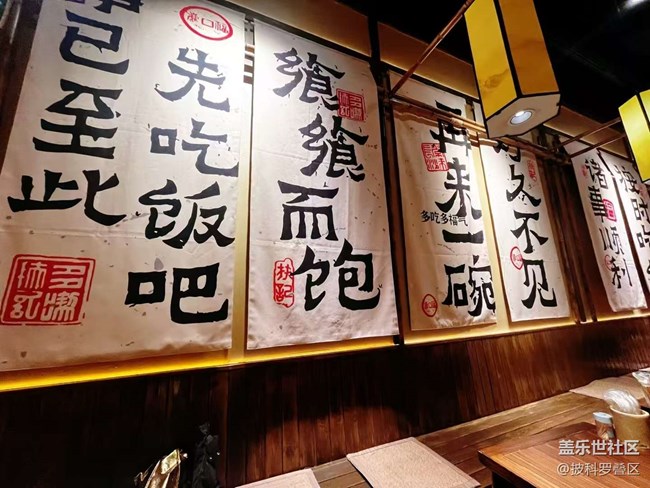 已至此
先吃饭吧
而饱
林記
再来一碗
多吃多福气
久不见
诸事顺利
按时吃
盖乐世社区
@披科罗叠区